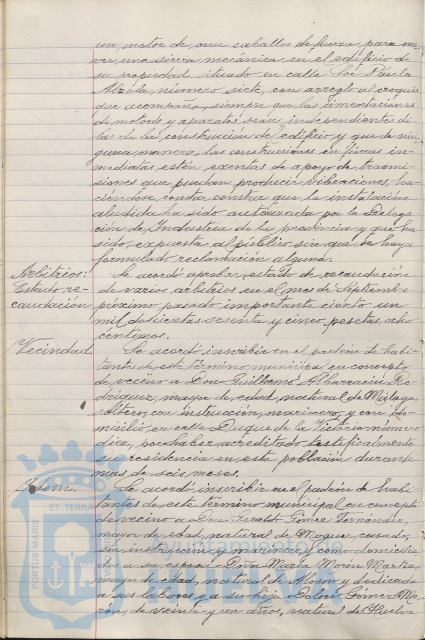 un motor de once caballos de fuerza para mo-
ver una sierra mecánica en el edificio de
su propiedad situado en calle
número siete, con arreglo al croquis
que acompaña, siempre que las cimentaciones
de motor de y aparatos sean independientes de
las de la construcción del edificio y que de nin-
guna manera, las construcciones en fincas in-
mediatas estén exentas de apoyo de trasmi-
siones que puedan producir vibraciones, ha-
ciéndose constar que la instalación
aludida ha sido autorizada por la Delega-
ción de Industria de la provincia y que ha
sido expuesta al público sin que se haya
formulado reclamación alguna.
Arbitrios:
Estado re-
caudación
Se acordó aprobar estado de recaudación
de varios arbitrios en el mes de Septiembre
próximo pasado importante ciento un
mil doscientas sesenta y cinco pesetas, ocho
céntimos.
Vecindad
Se acordó inscribir en el padrón de habi-
tantes de este término municipal en concepto
de vecino a Don Guillermo Albarracín Ro-
dríguez, mayor de edad, natural de Málaga,
soltero, con instrucción, marinero, y con do-
micilio en calle Duque de la Victoria número
diez, por haber acreditado testificalmente
su residencia en esta población durante
mas de seis meses.
Idem.
Se acordó inscribir en el padrón de habi-
tantes de este término municipal en concepto
de vecino a Don Gómez Fernández,
mayor de edad, natural de Moguer, casado,
sin instrucción y marino, y como domiciliada
a su esposa Doña María Morón Martín
mayor de edad, natural de y dedicada
a sus labores y a su hija Dolores Gómez Mo-
rón de veinte y un años, natural de Huelva
PORTUS MARIS
ET TERRÆ